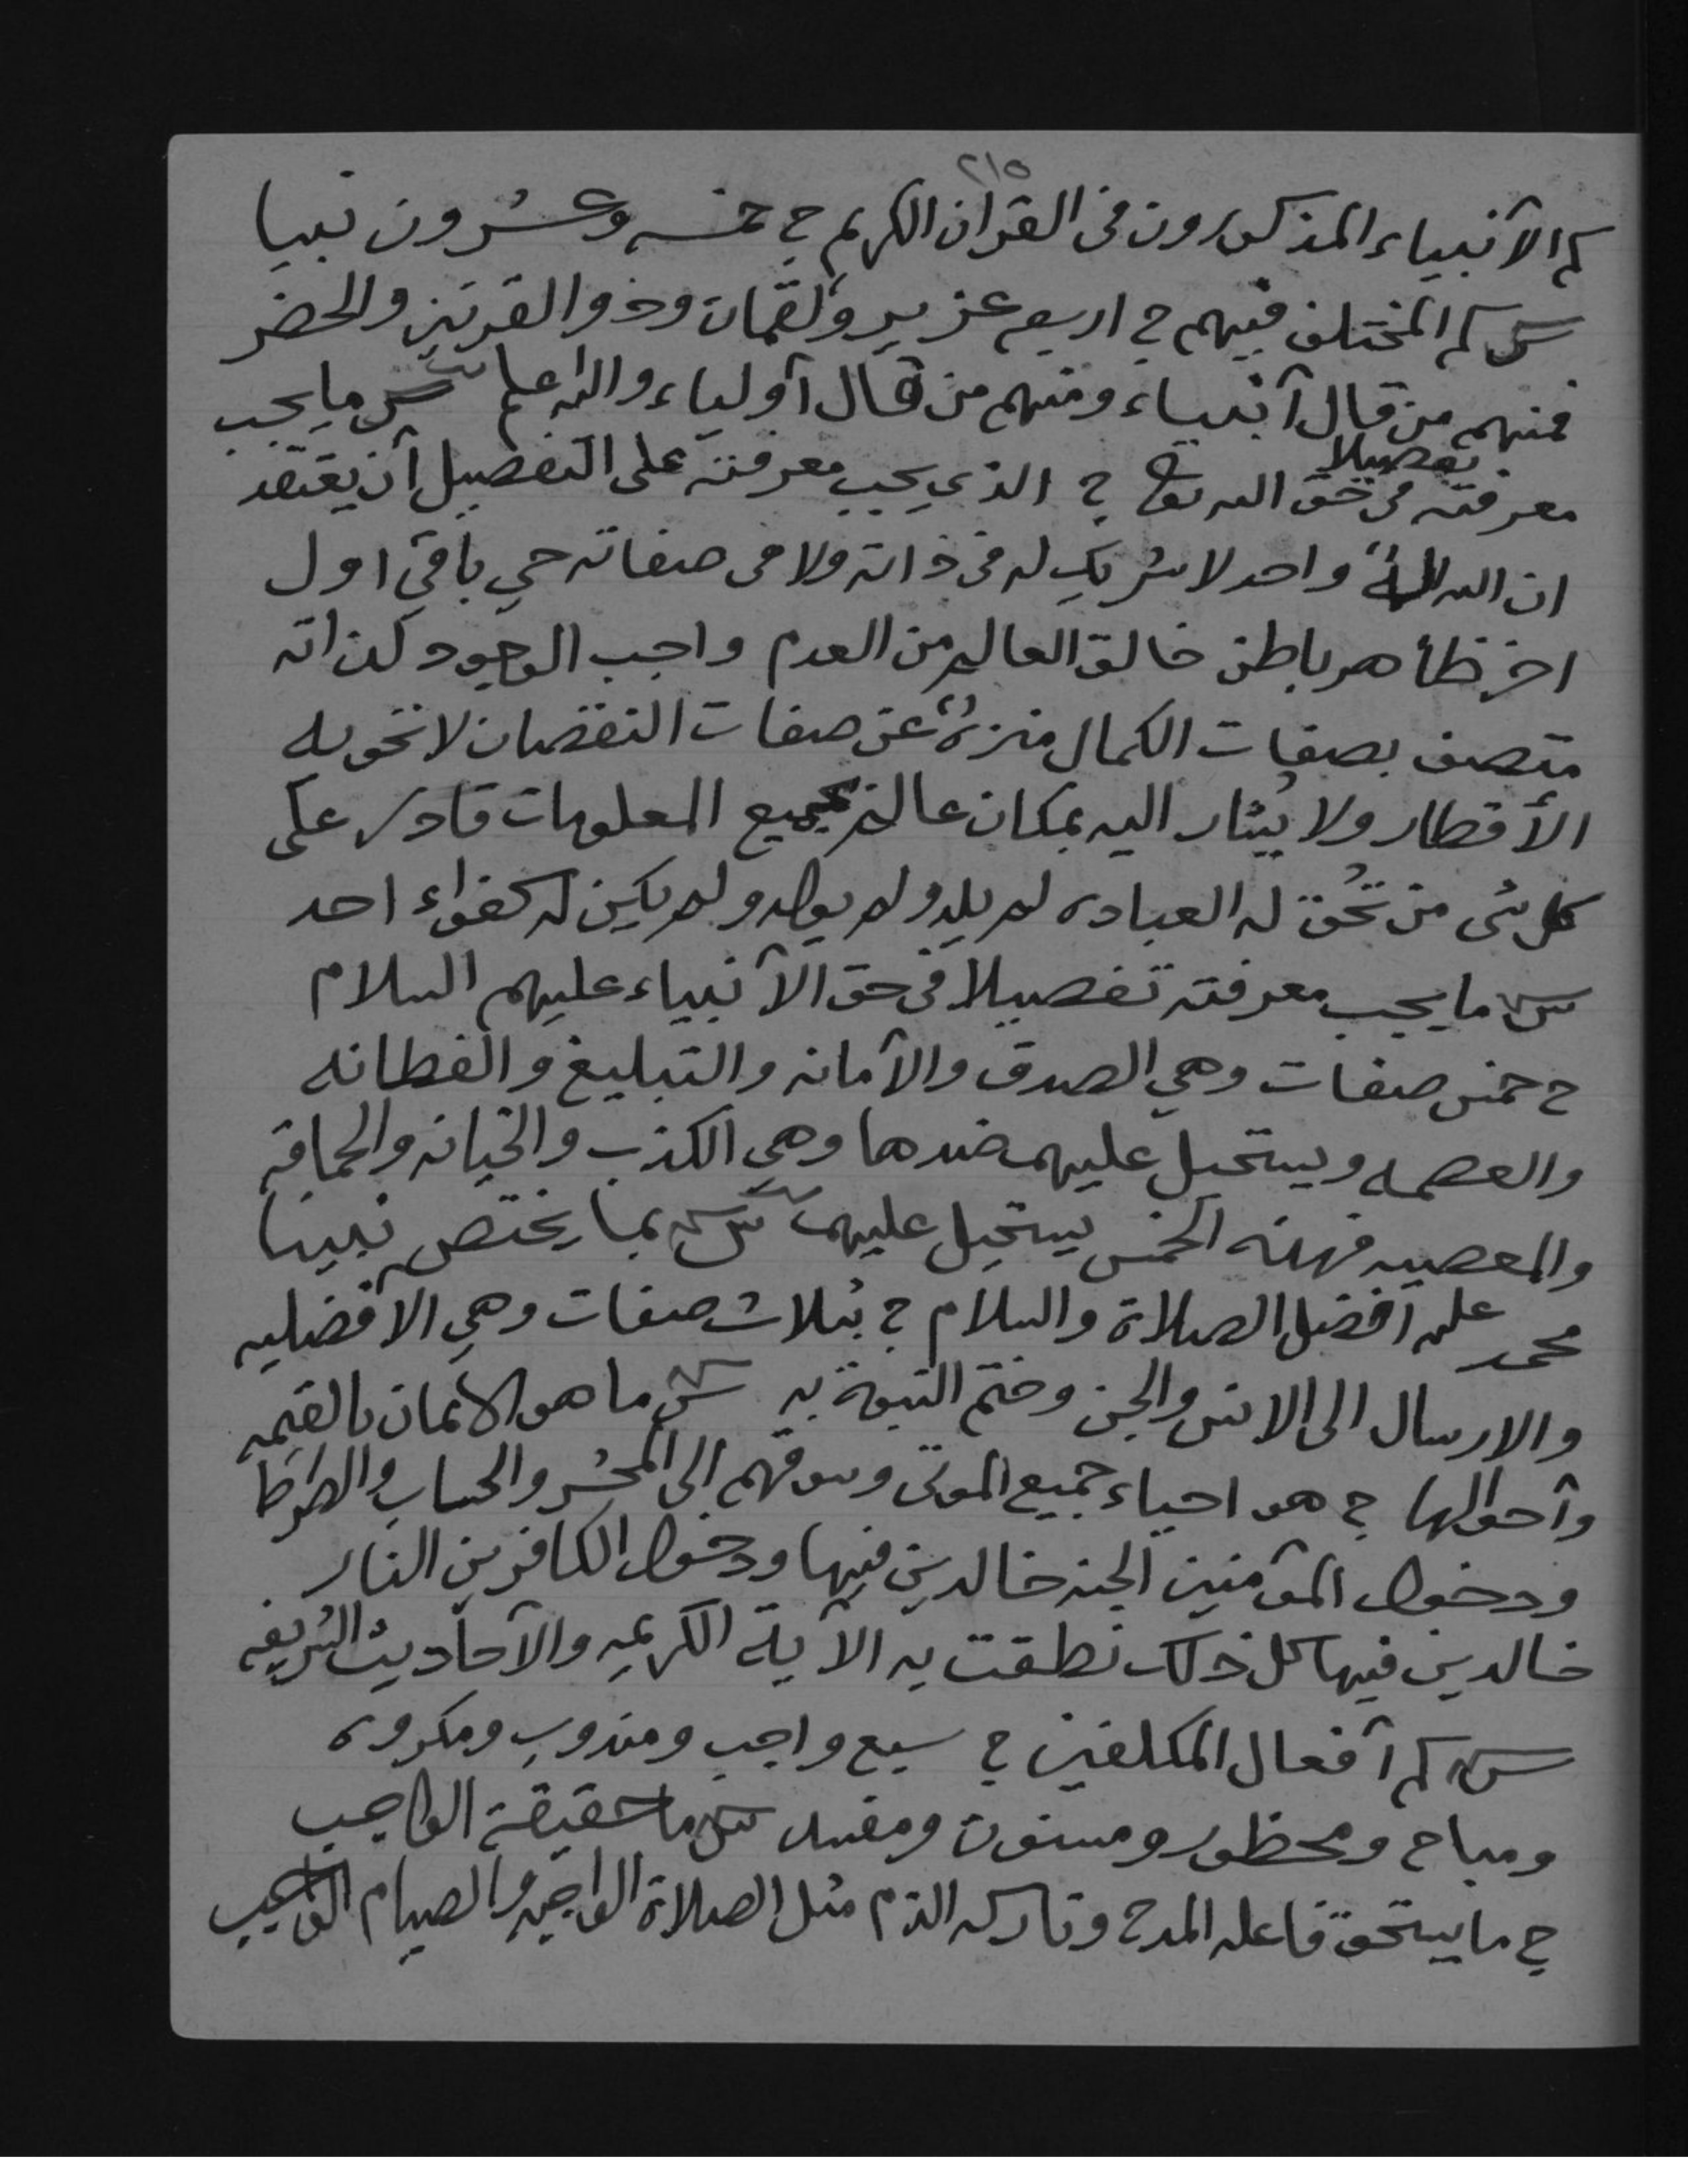 ٢١٥
كم الآنبياء المذكورون في القران الكريم ج خمسه وعشرون نبيا
س كم المختلف فيهم ج اربعه عزير ولقمان وذوالقرنين والخضر
فمنهم من قال آنبياء ومنهم من قال آولياء والله اعلم س ما يجب
معرفته تفصيلا في حق الله تعا ج الذي يجب معرفته على التفصيل آن يعتقد
ان الله الهٌ واحد لا شريك له في ذاته ولا في صفاته حي باقي اول
اخر ظاهر باطن خالق العالم من العدم واجب الوجود لذاته
متصف بصفات الكمال منزهٌ عن صفات النقصان لا تحويه
الأقطار ولا يُشار اليه بمكان عالم بجميع المعلومات قادر على
كل شى من تحُق له العباده لم يلد ولم يولد ولم يكن له كفواء احد
س ما يجب معرفته تفصيلا في حق الآنبياء عليهم السلام
ج خمس صفات وهي الصدق والآمانه والتبليغ والفطانه
والعصمه ويستحيل عليهم ضدها وهي الكذب والخيانه والحماقه
والمعصيه فهذه الخمس يستحيل عليهم س بما يختص نبينا
محمد عليه آفضل الصلاة والسلام ج بثلاث صفات وهي الافضليه
والارسال الى الانس والجن وختم النبوة به س ما هو الايمان بالقيمه
وآحوالها ج هو احياء جميع الموتى وسوقهم الى المحشر والحساب والصراط
ودخول المؤمنين الجنه خالدين فيها ودخول الكافرين النار
خالدين فيها كل ذلك نطقت به الآية الكريمه والآحاديث الشريفه
س كم آفعال المكلفين ج سبع واجب ومندوب ومكروه
ومباح ومحظور ومسنون ومفسد س ما حقيقة الواجب
ج ما يستحق فاعله المدح وتاركه الذم مثل الصلاة الواجبه والصيام الواجب